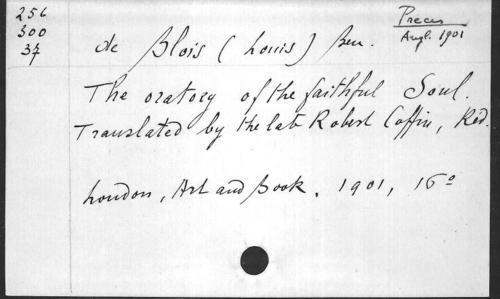 256
300
37
Preces
Angl. 1901
de Blois (Louis) Ben.
The oratory of the faithful Soul.
Translated by the late Robert Coffin, Réd.
London, Art and Book. 1901, 16º